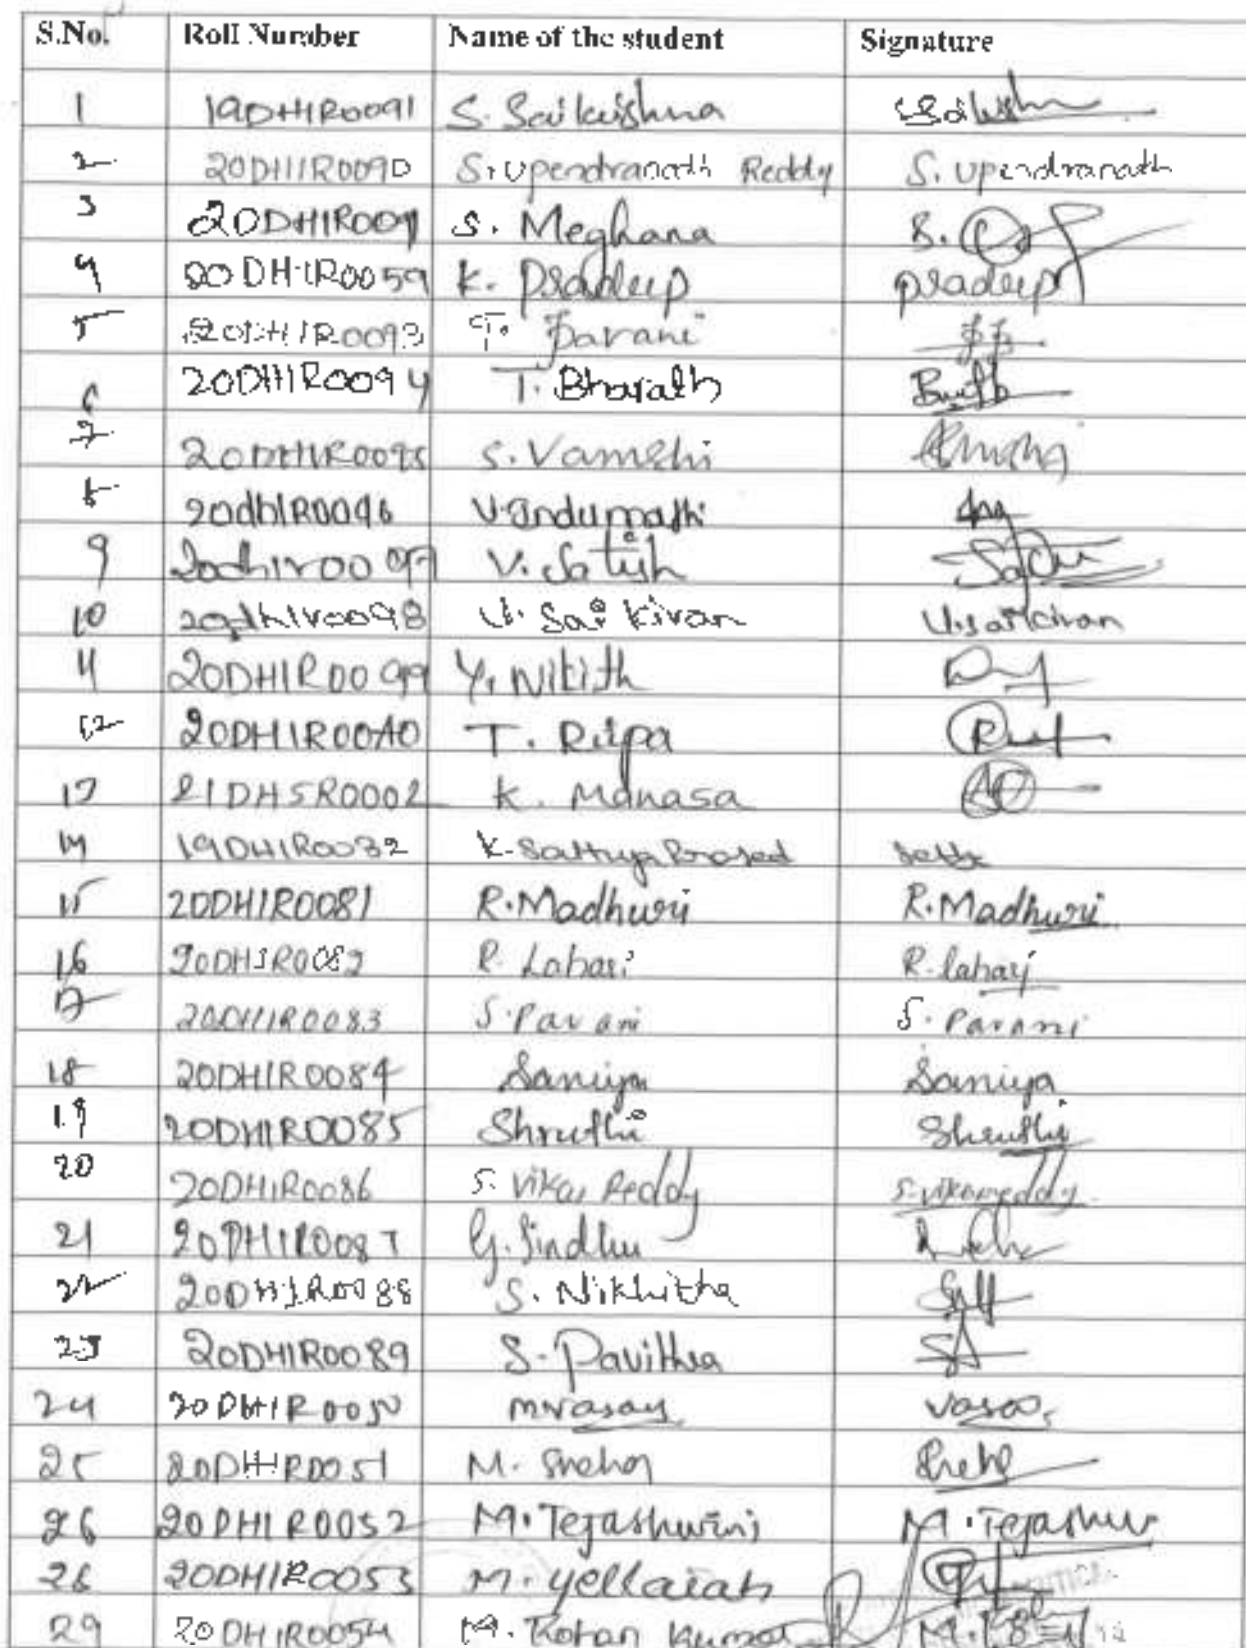 S.No. Roll Number Name of the student Signature
1 19DH1R0091 S. Saikrishna
2 20DH1R0090 S. Upendranath Reddy S. Upendranath
3 20DH1R009 S. Meghana S.
4 20DH1R0059 K. Pradeep pradeep
5 20DH1R0093 T. Pavani
6 20DH1R0094 T. Bharath
7 20DH1R0095 S. Vamshi
8 20dh1R0096 V. Indumathi
9 20dh1r0097 V. Satish
10 20dh1r0098 V. Sai Kiran V. saikiran
11 20DH1R0099 Y. Nikith
12 20DH1R00A0 T. Rupa
13 21DH5R0002 K. Manasa
14 19DH1R0032 K. Sathya Prasad
15 20DH1R0081 R. Madhuri R. Madhuri
16 20DH1R0082 R. Lahari R. lahari
17 20DH1R0083 S. Pavani S. Pavani
18 20DH1R0084 Saniya Saniya
19 20DH1R0085 Shruthi Shruthi
20 20DH1R0086 S. Vikas Reddy S. vikasreddy
21 20DH1R0087 G. Sindhu
22 20DH1R0088 S. Nikhitha
23 20DH1R0089 S. Pavithra
24 20DH1R0050
25 20DH1R0051 M. Sneha Sneha
26 20DH1R0052 M. Tejashwini M. Tejashw
26 20DH1R0053 M. yellaiah
29 20DH1R0054 M. Rohan Kumar